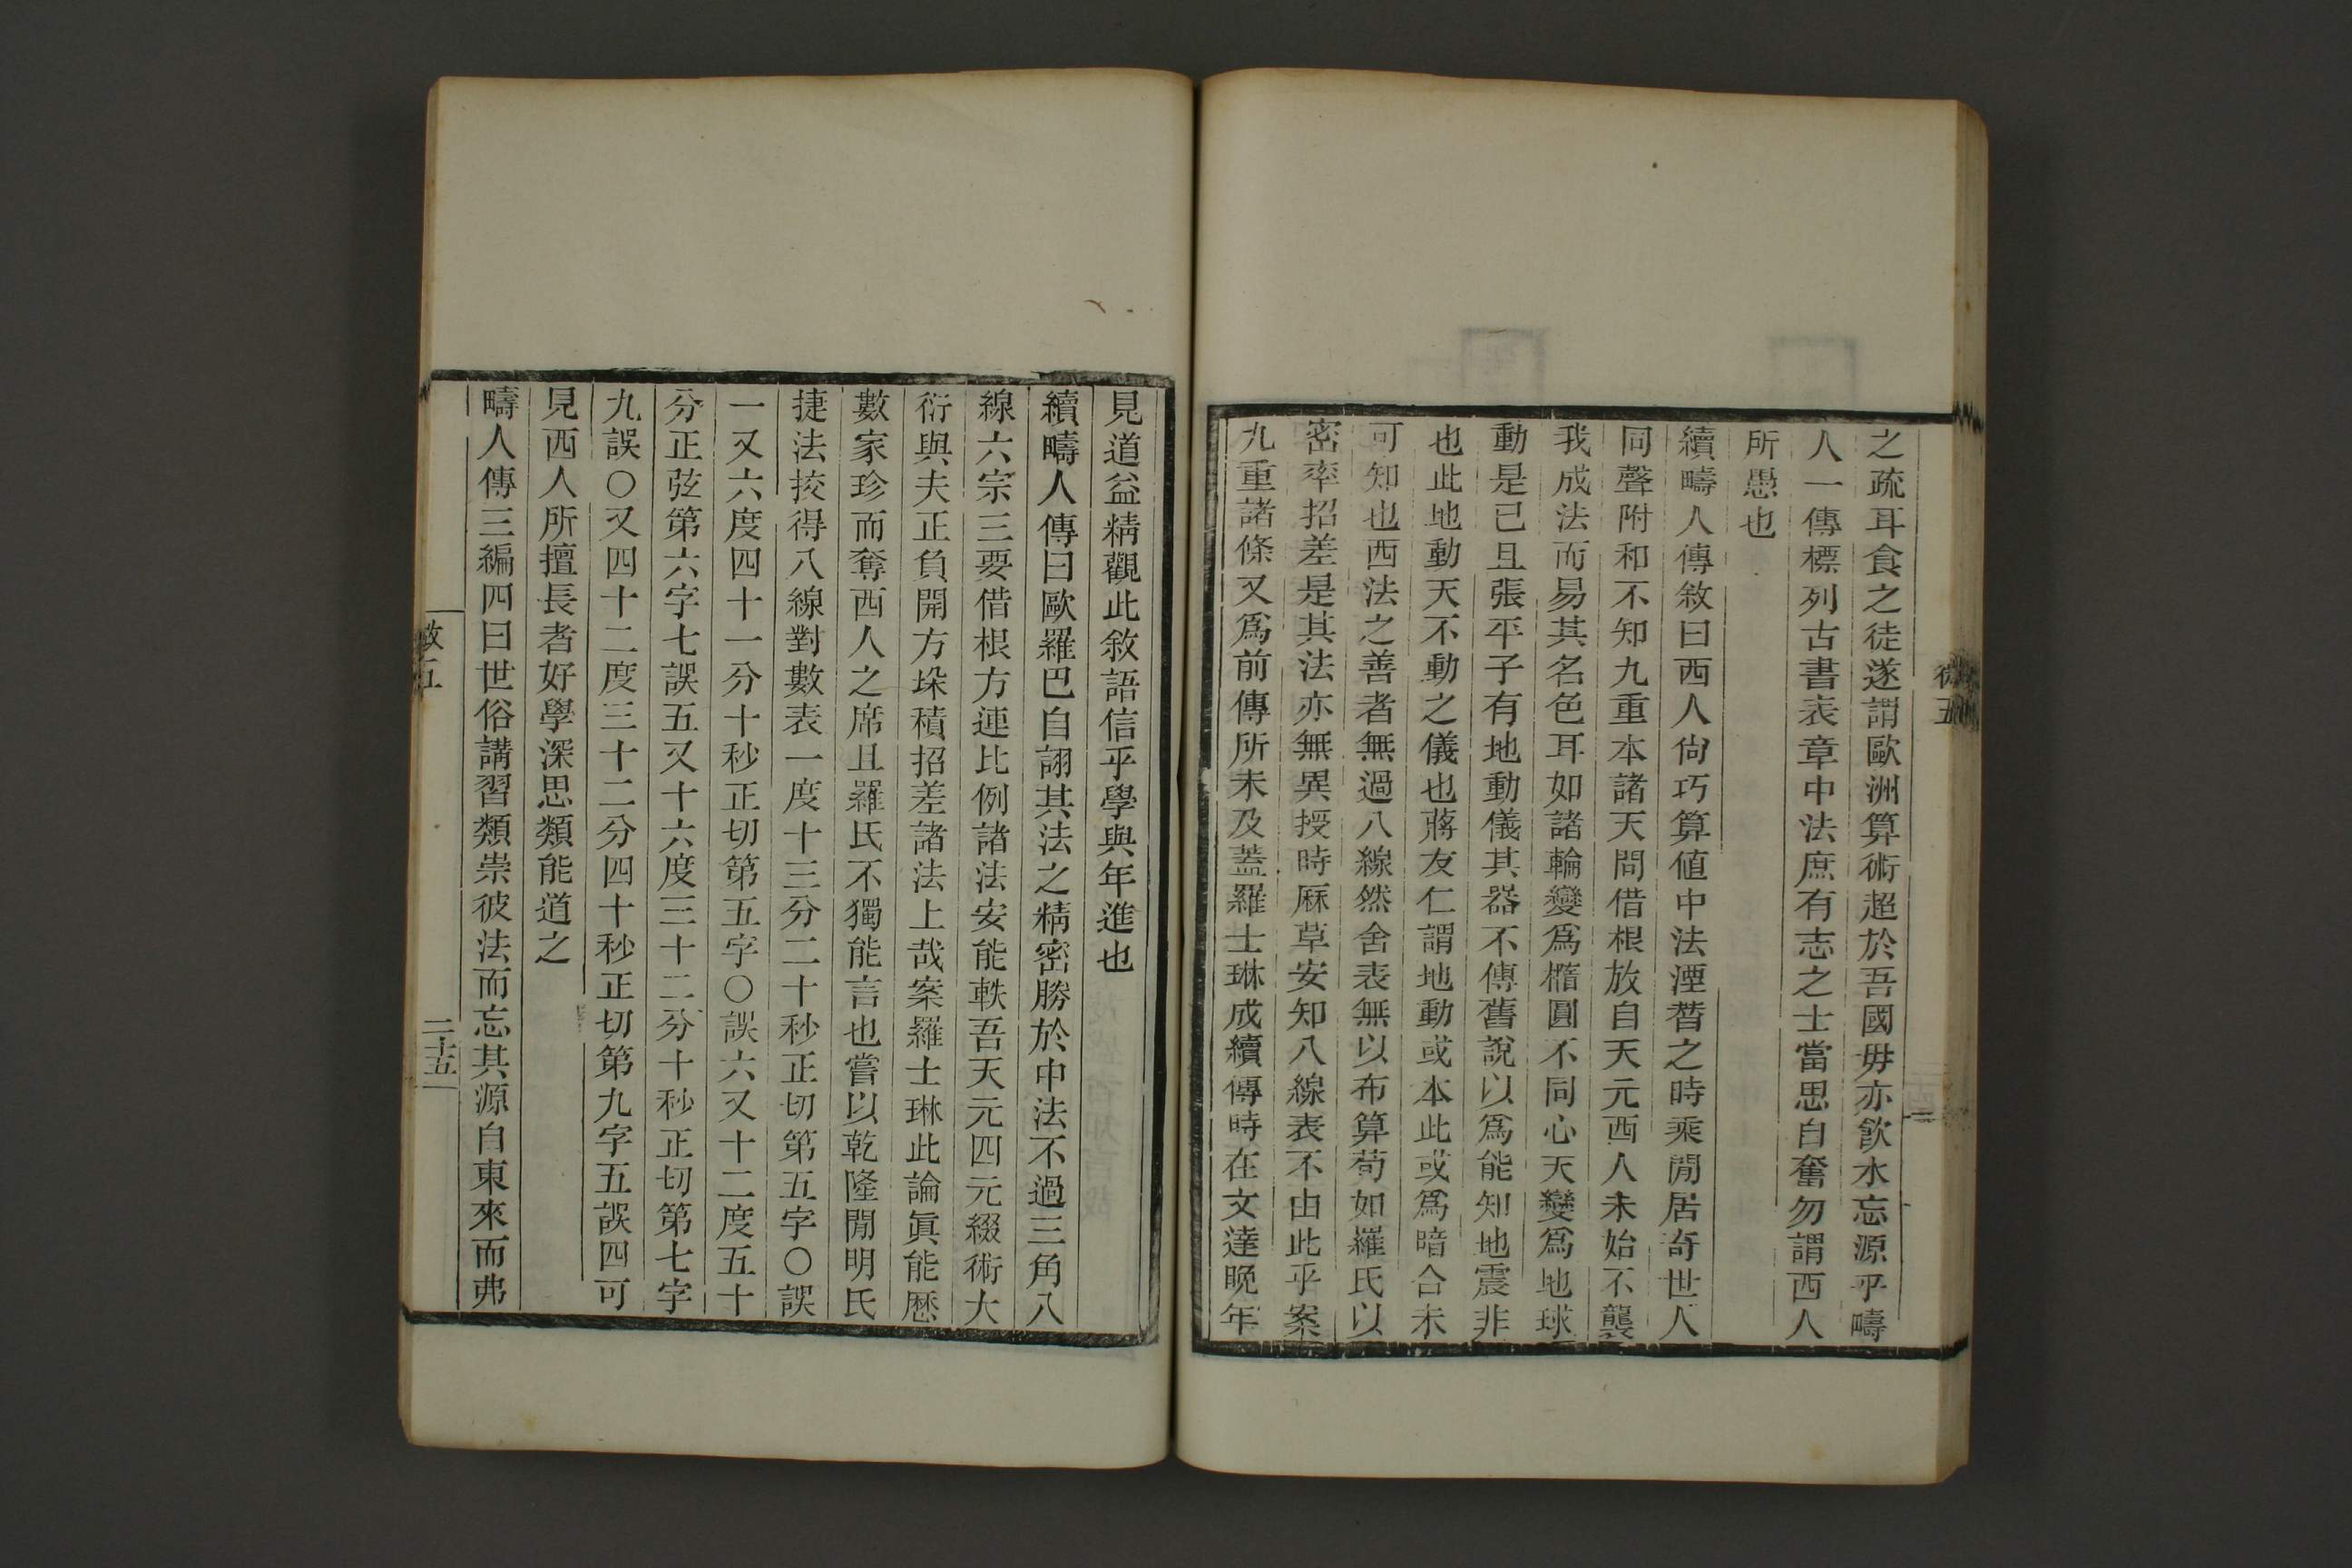 之疏耳食之徒遂謂歐洲算術超於吾國毋亦飲水忘源乎疇
人一傳標列古書表章中法庶有志之士當思自奮勿謂西人
所愚也
續疇人傳敘曰西人尙巧算値中法湮替之時乘閒居奇世人
同聲附和不知九重本諸天問借根放自天元西人未始不襲
我成法而易其名色耳如諸輪變爲橢圓不同心天變爲地球
動是已且張平子有地動儀其器不傳舊說以爲能知地震非
也此地動天不動之儀也蔣友仁謂地動或本此或爲暗合未
可知也西法之善者無過八線然舍表無以布算苟如羅氏以
密率招差是其法亦無異授時厤草安知八線表不由此乎案
九重諸條又爲前傳所未及蓋羅士琳成續傳時在文達晚年
見道益精觀此敘語信乎學與年進也
續疇人傳曰歐羅巴自詡其法之精密勝於中法不過三角八
線六宗三要借根方連比例諸法安能軼吾天元四元綴術大
衍與夫正負開方垛積招差諸法上哉案羅士琳此論眞能歷
數家珍而奪西人之席且羅氏不獨能言也嘗以乾隆閒明氏
捷法挍得八線對數表一度十三分二十秒正切第五字〇誤
一又六度四十一分十秒正切第五字〇誤六又十二度五十
分正弦第六字七誤五又十六度三十二分十秒正切第七字
九誤〇又四十二度三十二分四十秒正切第九字五誤四可
見西人所擅長者好學深思類能道之
疇人傳三編四曰世俗講習類崇彼法而忘其源自東來而弗
敘五
二十五